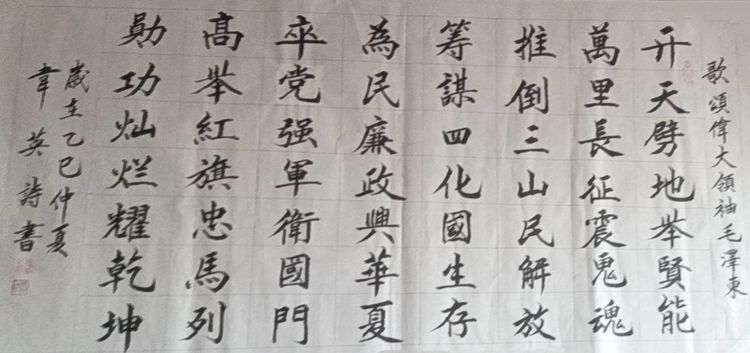 歌頌偉大領袖毛澤東
开天劈地举賢能
萬里長征震鬼魂
推倒三山民解放
筹謀四化國生存
為民廉政興華夏
卒党强軍衛國門
高举紅旗忠馬列
勋功灿烂耀乾坤
歲在乙巳仲夏
韋英詩書